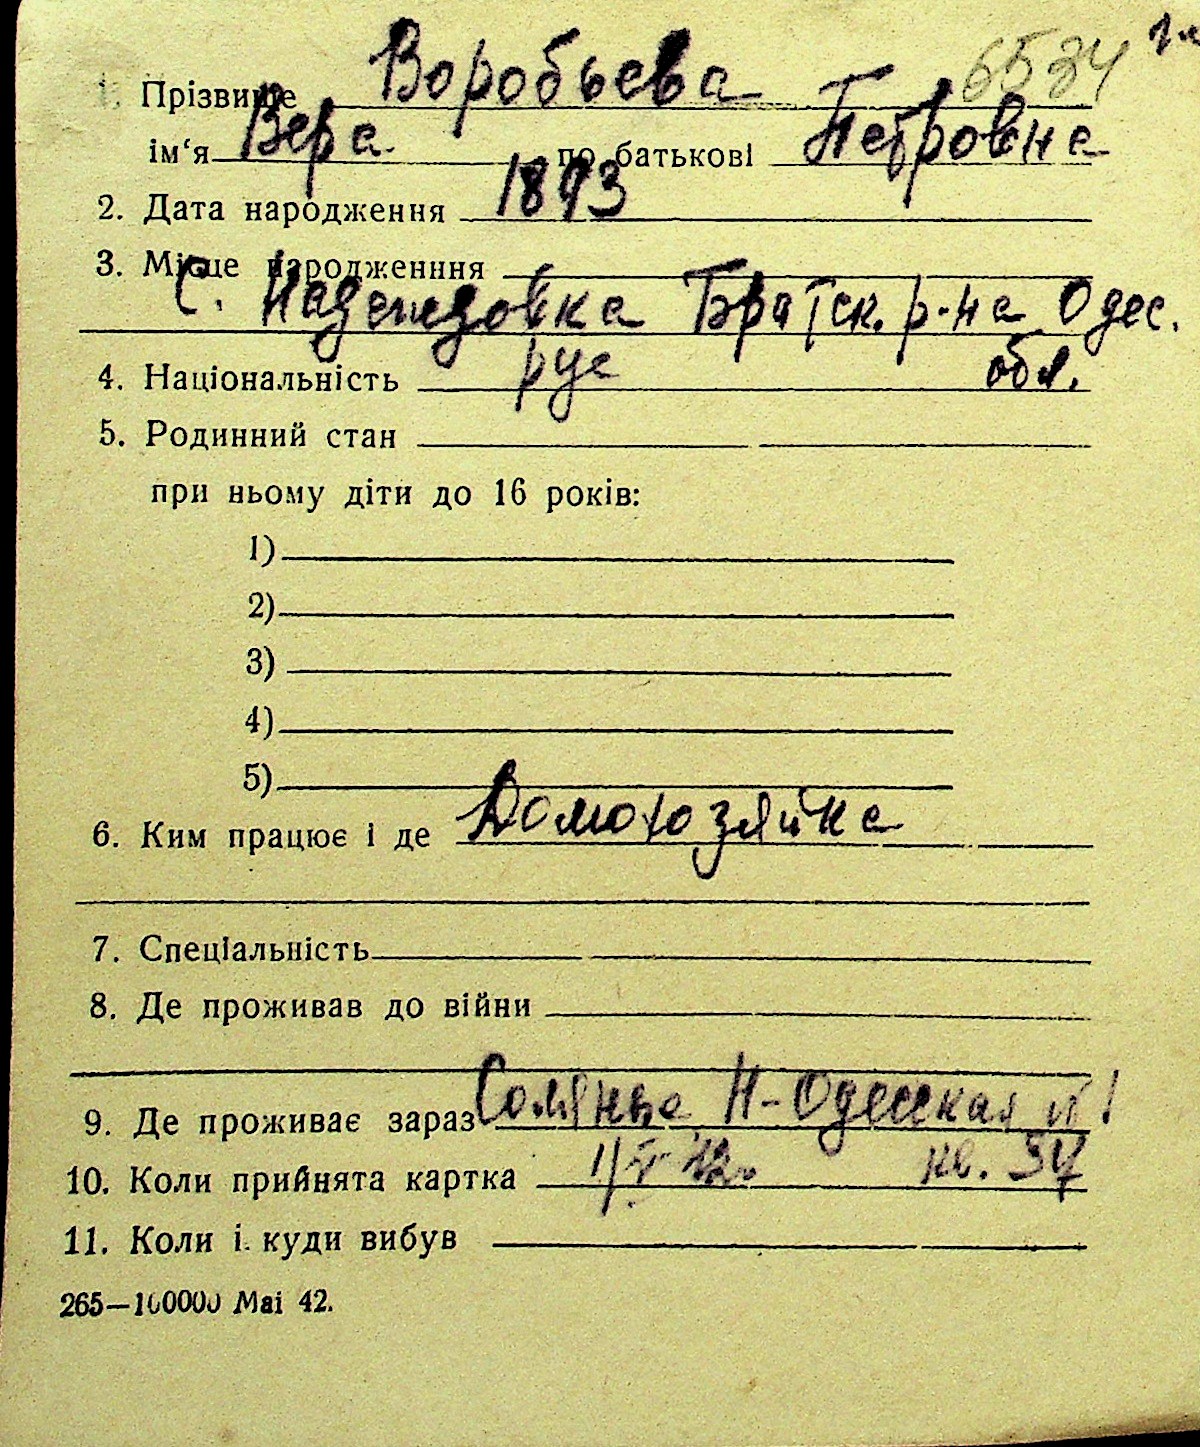 6534
1. Прізвище Воробьева
ім‘я Вера по батькові Петровна
2. Дата народження 1893
3. Місце народженння
с. Надеждовка Братск. р-на Одес.
обл.
4. Національність рус
5. Родинний стан
при ньому діти до 16 років:
1)
2)
3)
4)
5)
6. Ким працює і де Домохозяйка
7. Спеціальність
8. Де проживав до війни
9. Де проживає зараз Соляные Н-Одесская
10. Коли прийнята картка кв. 37
11. Коли і куди вибув
265—100000 Mai 42.